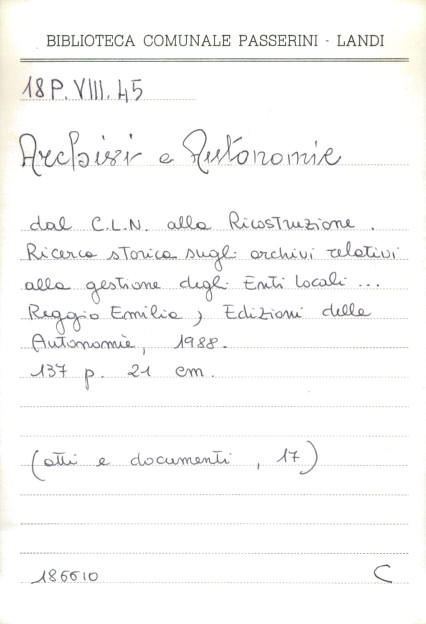 BIBLIOTECA COMUNALE PASSERINI - LANDI
18P.VIII.45
Archivi e Autonomie
dal C.L.N. alla Ricostruzione.
Ricerca storica sugli archivi relativi
alla gestione degli Enti locali...
Reggio Emilia, Edizioni delle
Autonomie, 1988.
137 p. 21 cm.
(atti e documenti, 17)
186610
C